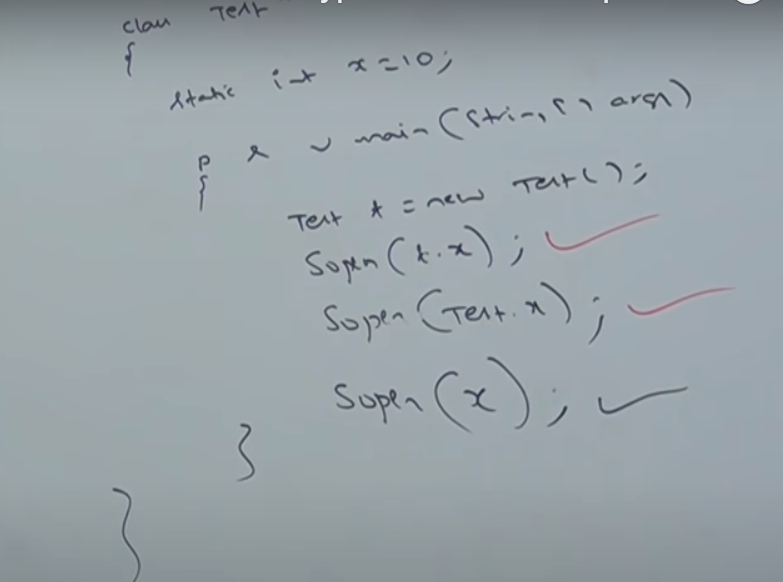 class Test
{
static int x=10;
p s v main(String[] args)
{
Test t = new Test();
Sopln(t.x);
Sopln(Test.x);
Sopln(x);
}
}